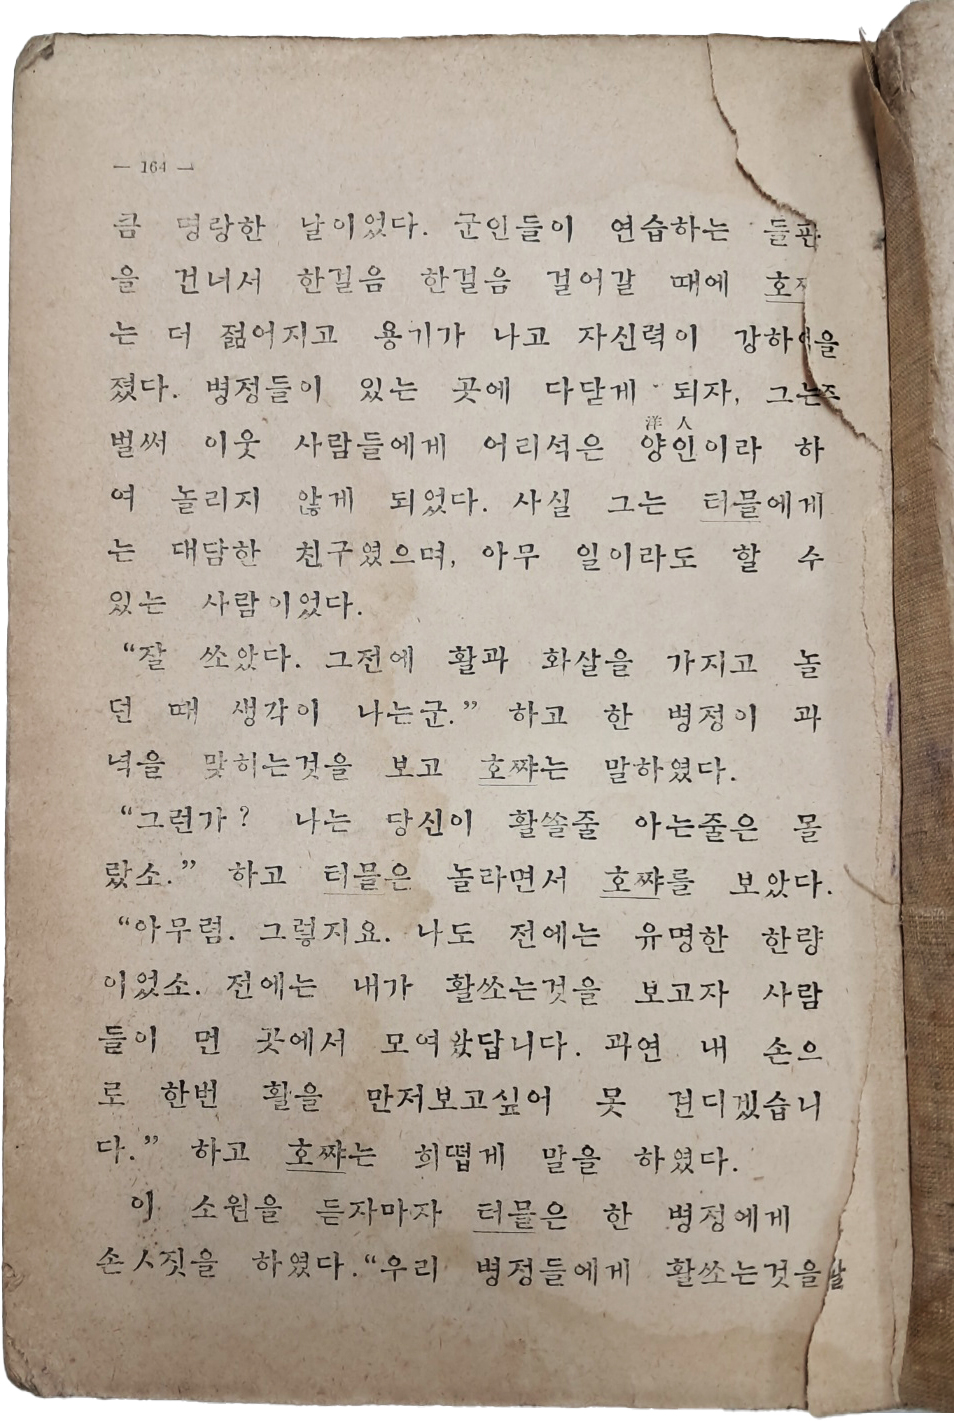 — 164 —
큼 명랑한 날이었다. 군인들이 연습하는 들판
을 건너서 한걸음 한걸음 걸어갈 때에
는 더 젊어지고 용기가 나고 자신력이 강하여
졌다. 병정들이 있는 곳에 다닫게 되자, 그는
洋人
벌써 이웃 사람들에게 어리석은 양인이라 하
여 놀리지 않게 되었다. 사실 그는 터믈에게
는 대담한 친구였으며, 아무 일이라도 할 수
있는 사람이었다.
“잘 쏘았다. 그전에 활과 화살을 가지고 놀
던 때 생각이 나는군.” 하고 한 병정이 과
녁을 맞히는것을 보고 호쨔는 말하였다.
“그런가? 나는 당신이 활쏠줄 아는줄은 몰
랐소.” 하고 터믈은 놀라면서 호쨔를 보았다.
“아무렴. 그렇지요. 나도 전에는 유명한 한량
이었소. 전에는 내가 활쏘는것을 보고자 사람
들이 먼 곳에서 모여왔답니다. 과연 내 손으
로 한번 활을 만저보고싶어 못 견디겠습니
다.” 하고 호쨔는 희떱게 말을 하였다.
이 소원을 듣자마자 터믈은 한 병정에게
손ㅅ짓을 하였다. “우리 병정들에게 활쏘는것을